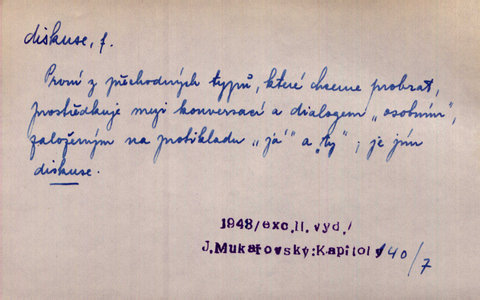 diskuse, f.
První z přechodných typů, které chceme probrat,
prostředkuje mezi konversací a dialogem „osobním",
založeným na protikladu „já" a „ty"; je jím
diskuse.
1948/exc.II.vyd./
J.Mukařovský:Kapitoly 140/7